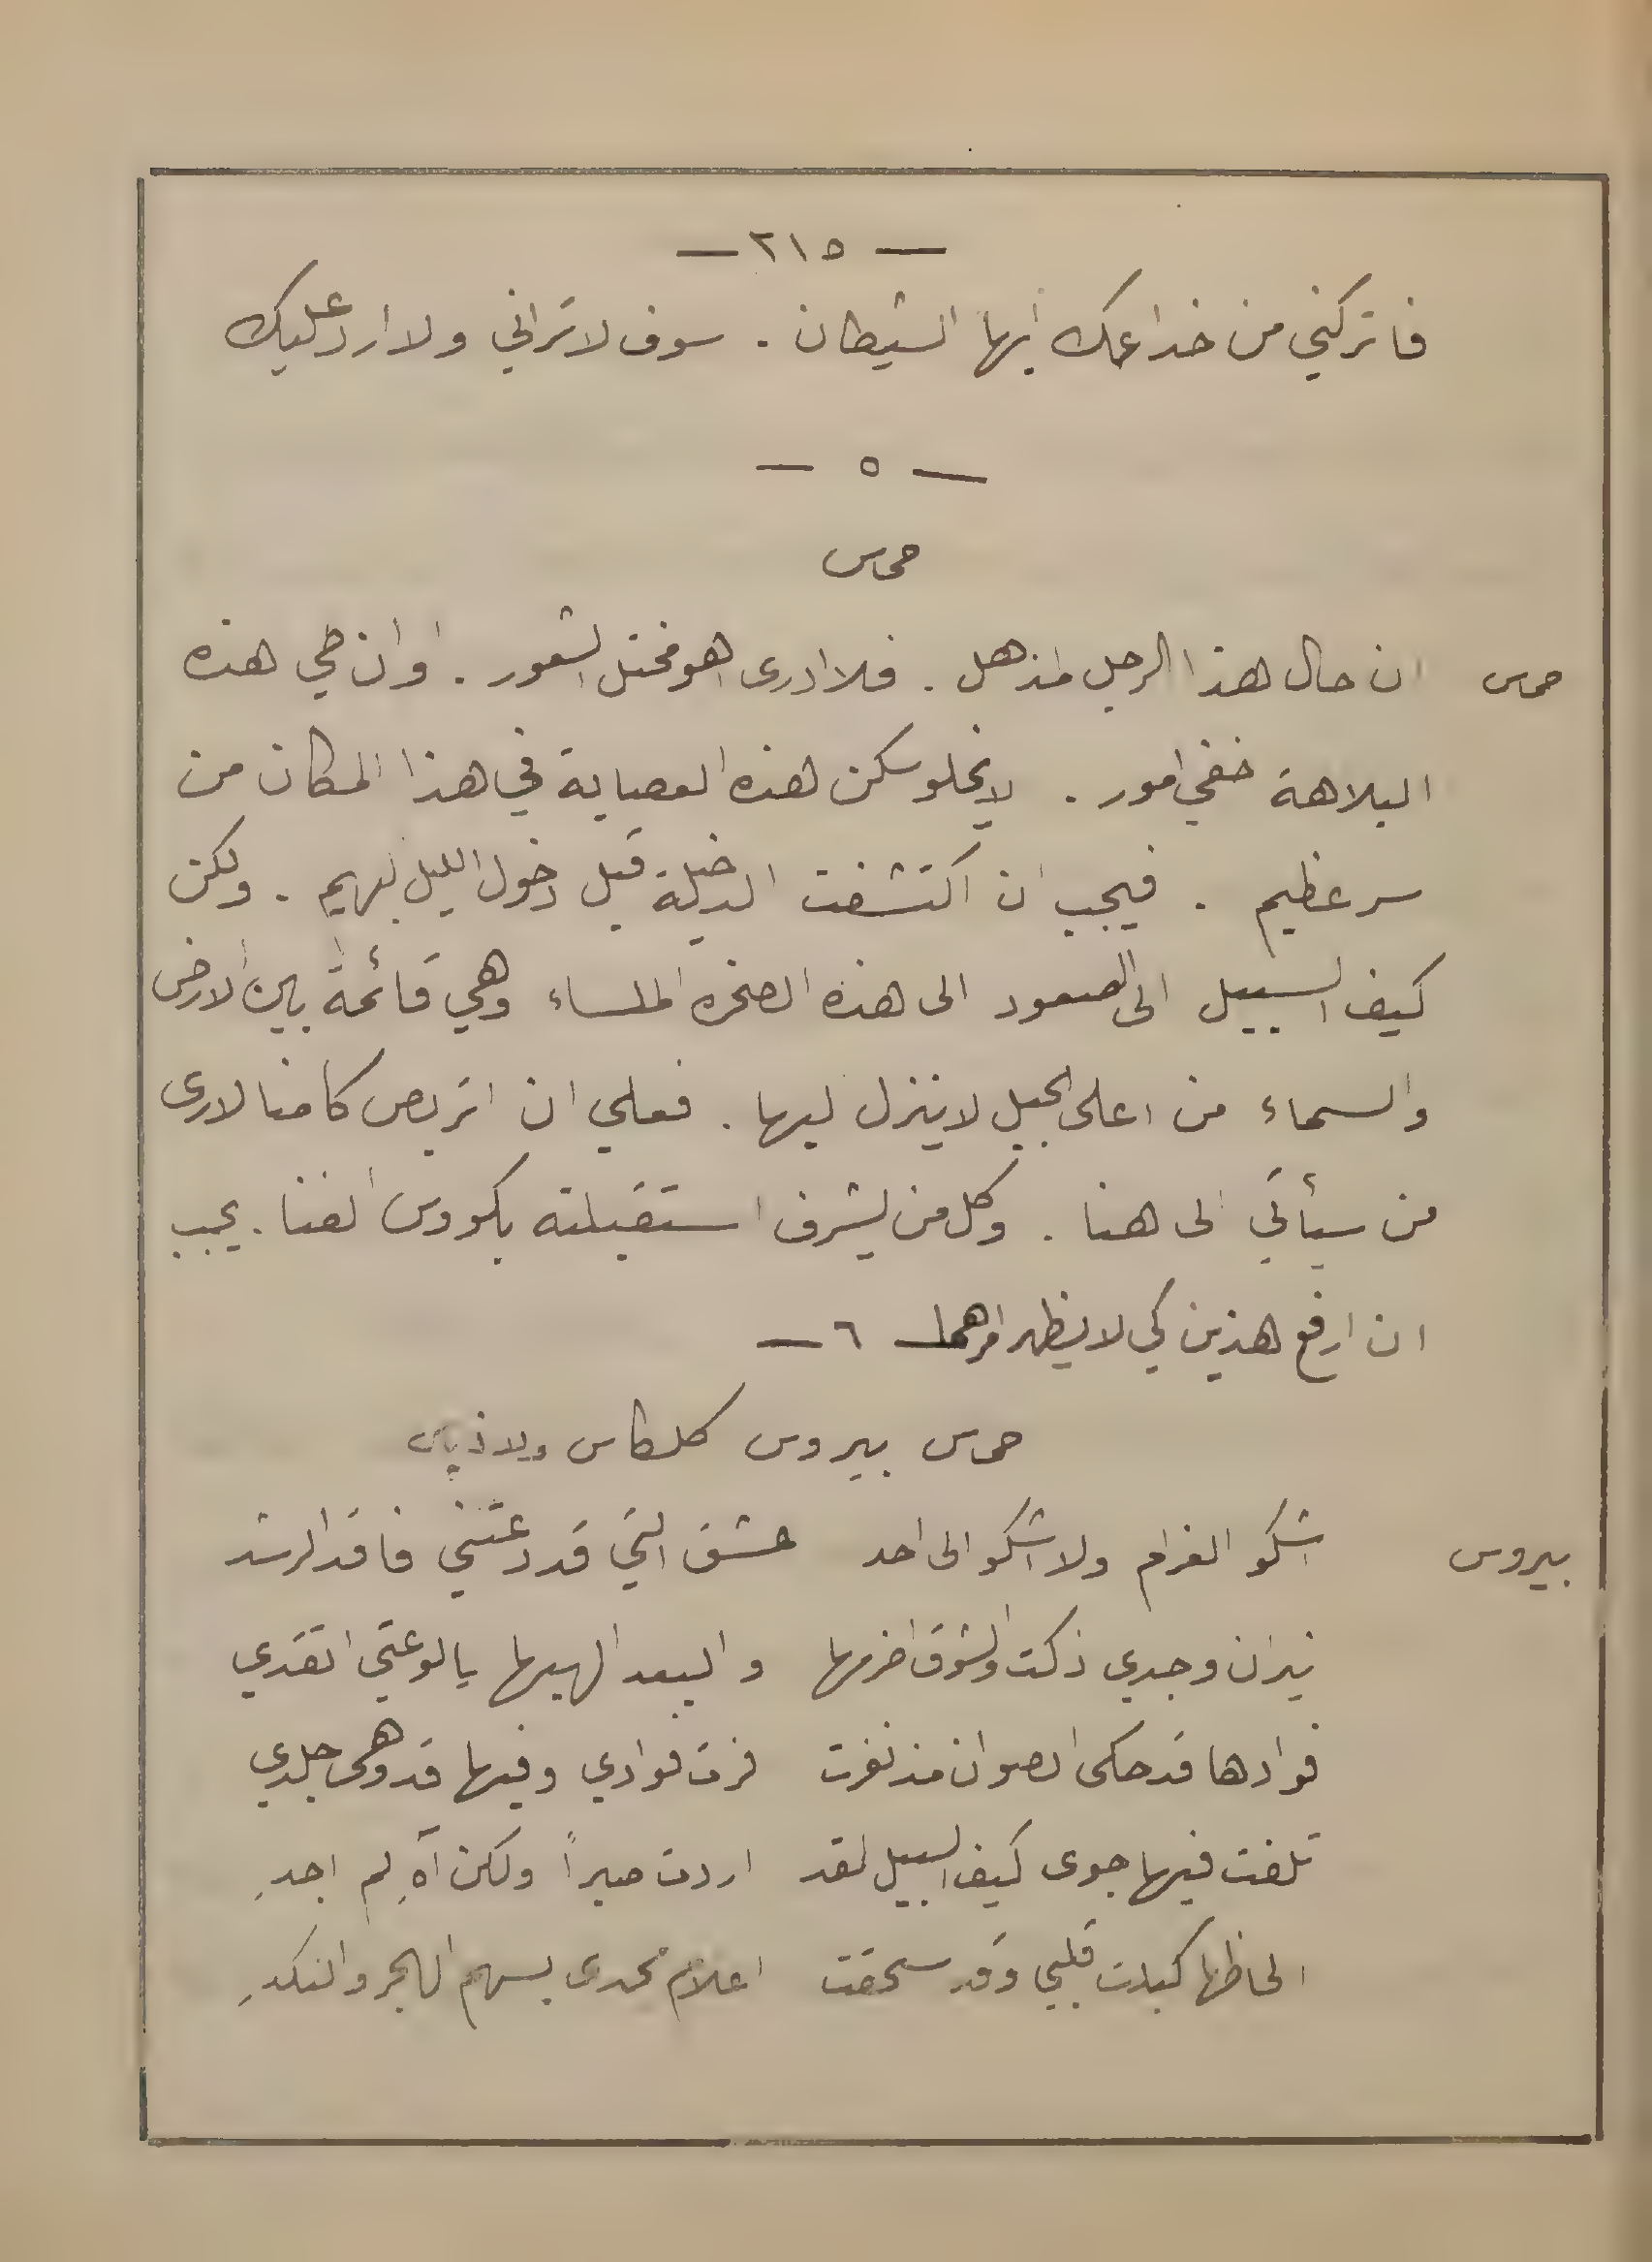 — ٢١٥ —
فاتركني من خداعك ايها الشيطان . سوف لا تراني ولا ارد عليك
— ٥ —
حماس
حماس ان حال هذا الرجل لمذهل . فلا ادرى اهو مختل الشعور . او ان طي هذه
البلاهة خفي امور . لا يخلو سكن هذه العصابة في هذا المكان من
سر عظيم . فيجب ان اكتشفت الدخيلة قبل دخول الليل البهيم . ولكن
كيف السبيل الى الصعود الى هذه الصخره الملساء وهي قائمة بين الارض
والسماء من اعلى الجبل لا ينزل ليها . فعلي ان اتربص كامنا لارى
من سيأتي الى هنا . وكل من يشرف استقبلته بكووس الفنا . يجب
ان ارفع هذين كي لا يظهر امرهما — ٦ —
حماس بيروس كلكاس
بيروس اشكو الغرام ولا اشكو الى احد عشق التي قد دعتني فاقد الرشد
نيران وجدي ذكت والشوق اضرمها والبعد الهبها يا لوعتي اتقدي
فوادها قد حكى الصوان مذ نفرت فرت فوادي وفيها قد وهى جلدي
تلفت فيها جوى كيف السبيل لقد اردت صبراً ولكن آهِ لم اجدِ
الحاظها كبلت قلبي وقد سحقت اعلام مجدى بسهم الهجر والنكدِ